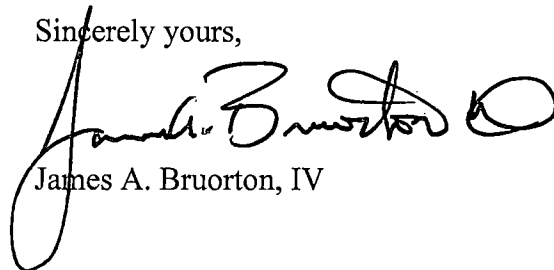 Sincerely yours,
James A. Bruorton IV
James A. Bruorton, IV